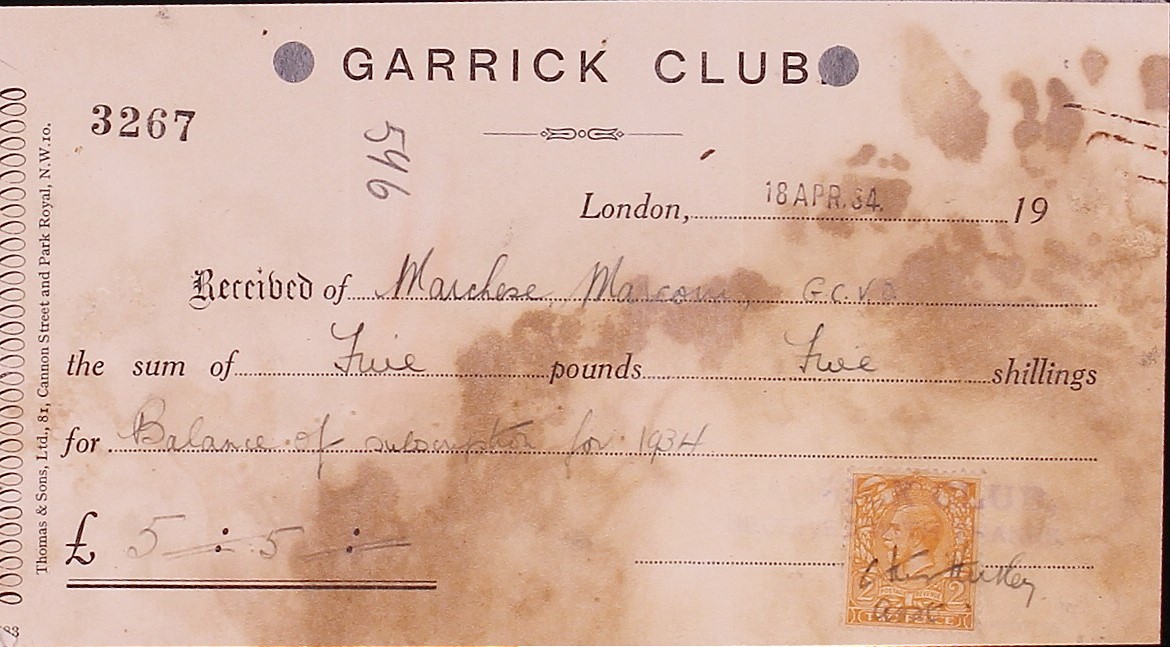 GARRICK CLUB.
3267
546
London, 18 APR. 34. 19
Received of Marchese Marconi, G.C.V.O.
the sum of Five pounds Five shillings
for Balance of subscription for 1934
£ 5 : 5 :
CLUB
2 POSTAGE REVENUE 2
TWO PENCE
Thomas & Sons, Ltd., 81, Cannon Street and Park Royal, N.W.10.